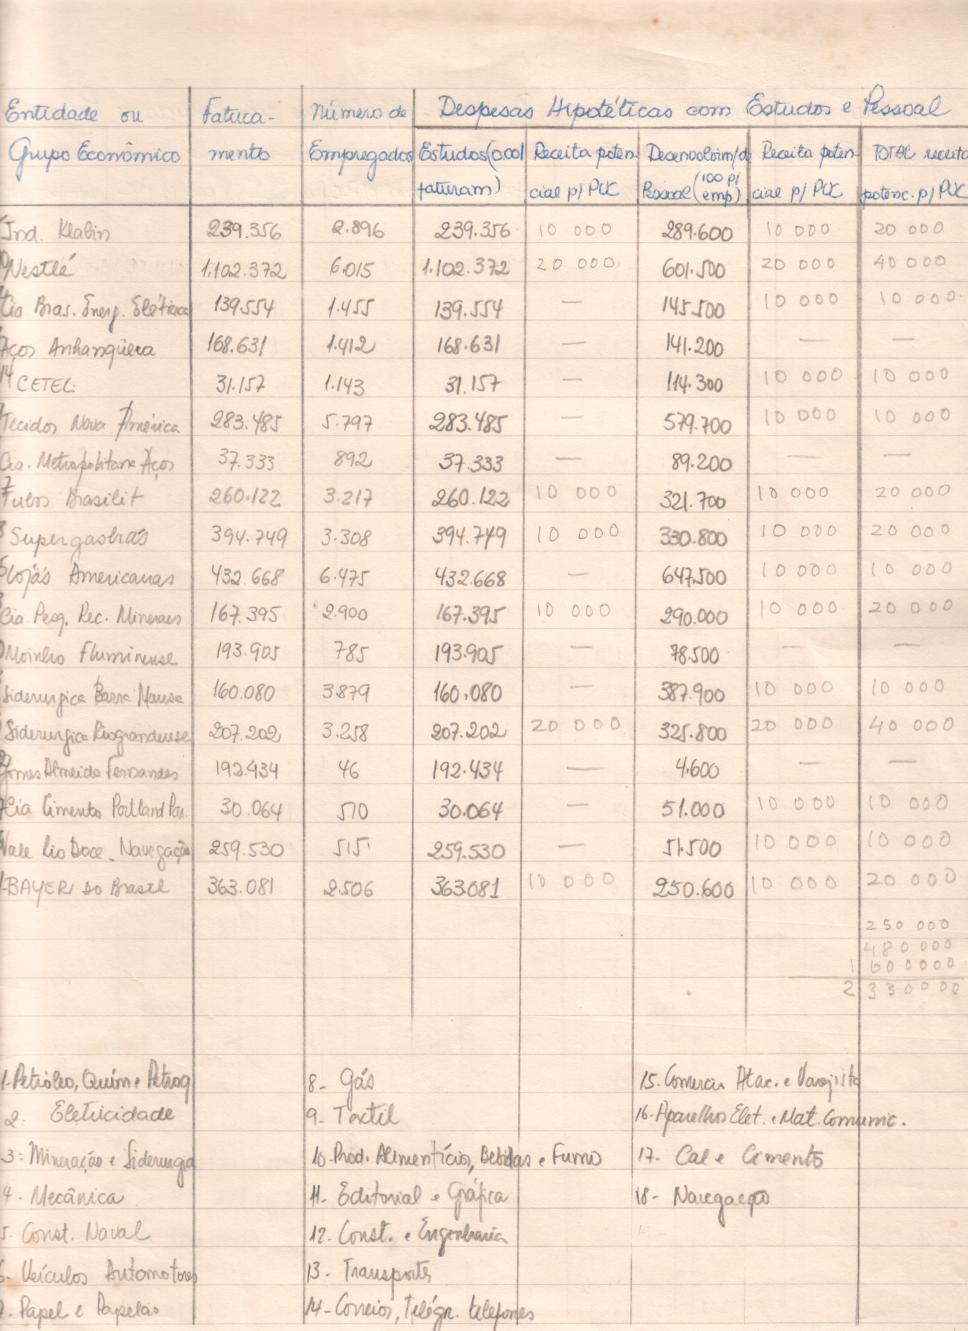 Entidade ou Fatura- Número de Despesas Hipotéticas com Estudos e Pessoal
Grupo Econômico mento Empregados Estudos(0.001 Receita poten- Desenvolvim/de Receita poten- TOTAL receita
faturam) cial p/ PUC Pessoal (100 p/ emp) cial p/ PUC potenc. p/ PUC
Ind. Klabin 239.356 2.896 239.356 10 000 289.600 10 000 20 000
Nestlé 1.102.372 6.015 1.102.372 20 000 601.500 20 000 40 000
Cia Bras. Energ. Elétrica 139.554 1.455 139.554 — 145.500 10 000 10 000
Aços Anhangüera 168.631 1.412 168.631 — 141.200 — —
14 CETEL 31.157 1.143 31.157 — 114.300 10 000 10 000
Tecidos Nova América 283.485 5.797 283.485 — 579.700 10 000 10 000
Cia. Metropolitana Aços 37.333 892 37.333 — 89.200 — —
Tubos Brasilit 260.122 3.217 260.122 10 000 321.700 10 000 20 000
8 Supergasbrás 394.749 3.308 394.749 10 000 330.800 10 000 20 000
Lojas Americanas 432.668 6.475 432.668 — 647.500 10 000 10 000
Cia Pesq. Rec. Minerais 167.395 2.900 167.395 10 000 290.000 10 000 20 000
Moinho Fluminense 193.905 785 193.905 — 78.500 — —
Siderurgica Barra Mansa 160.080 3879 160.080 — 387.900 10 000 10 000
Siderurgica Riograndense 207.202 3.258 207.202 20 000 325.800 20 000 40 000
Gomes Almeida Fernandes 192.434 46 192.434 — 4.600 — —
Cia Cimento Portland Par. 30.064 510 30.064 — 51.000 10 000 10 000
Vale Rio Doce - Navegação 259.530 515 259.530 — 51.500 10 000 10 000
BAYER do Brasil 363.081 2.506 363.081 10 000 250.600 10 000 20 000
250 000
480000
1 600000
2 330000
1-Petróleo, Quím e Petroq 8- Gás 15. Comercio Atac. e Varejista
2. Eletricidade 9- Têxtil 16-Aparelhos Elet. e Mat. Comunic.
3= Mineração e Siderurgia 10-Prod. Alimentícios, Bebidas e Fumo 17- Cal e Cimento
4- Mecânica 11- Editorial e Gráfica 18- Navegação
5. Const. Naval 12- Const. e Engenharia
6- Veículos Automotores 13- Transportes
7. Papel e Papelão 14- Correios, Telégr. telefones